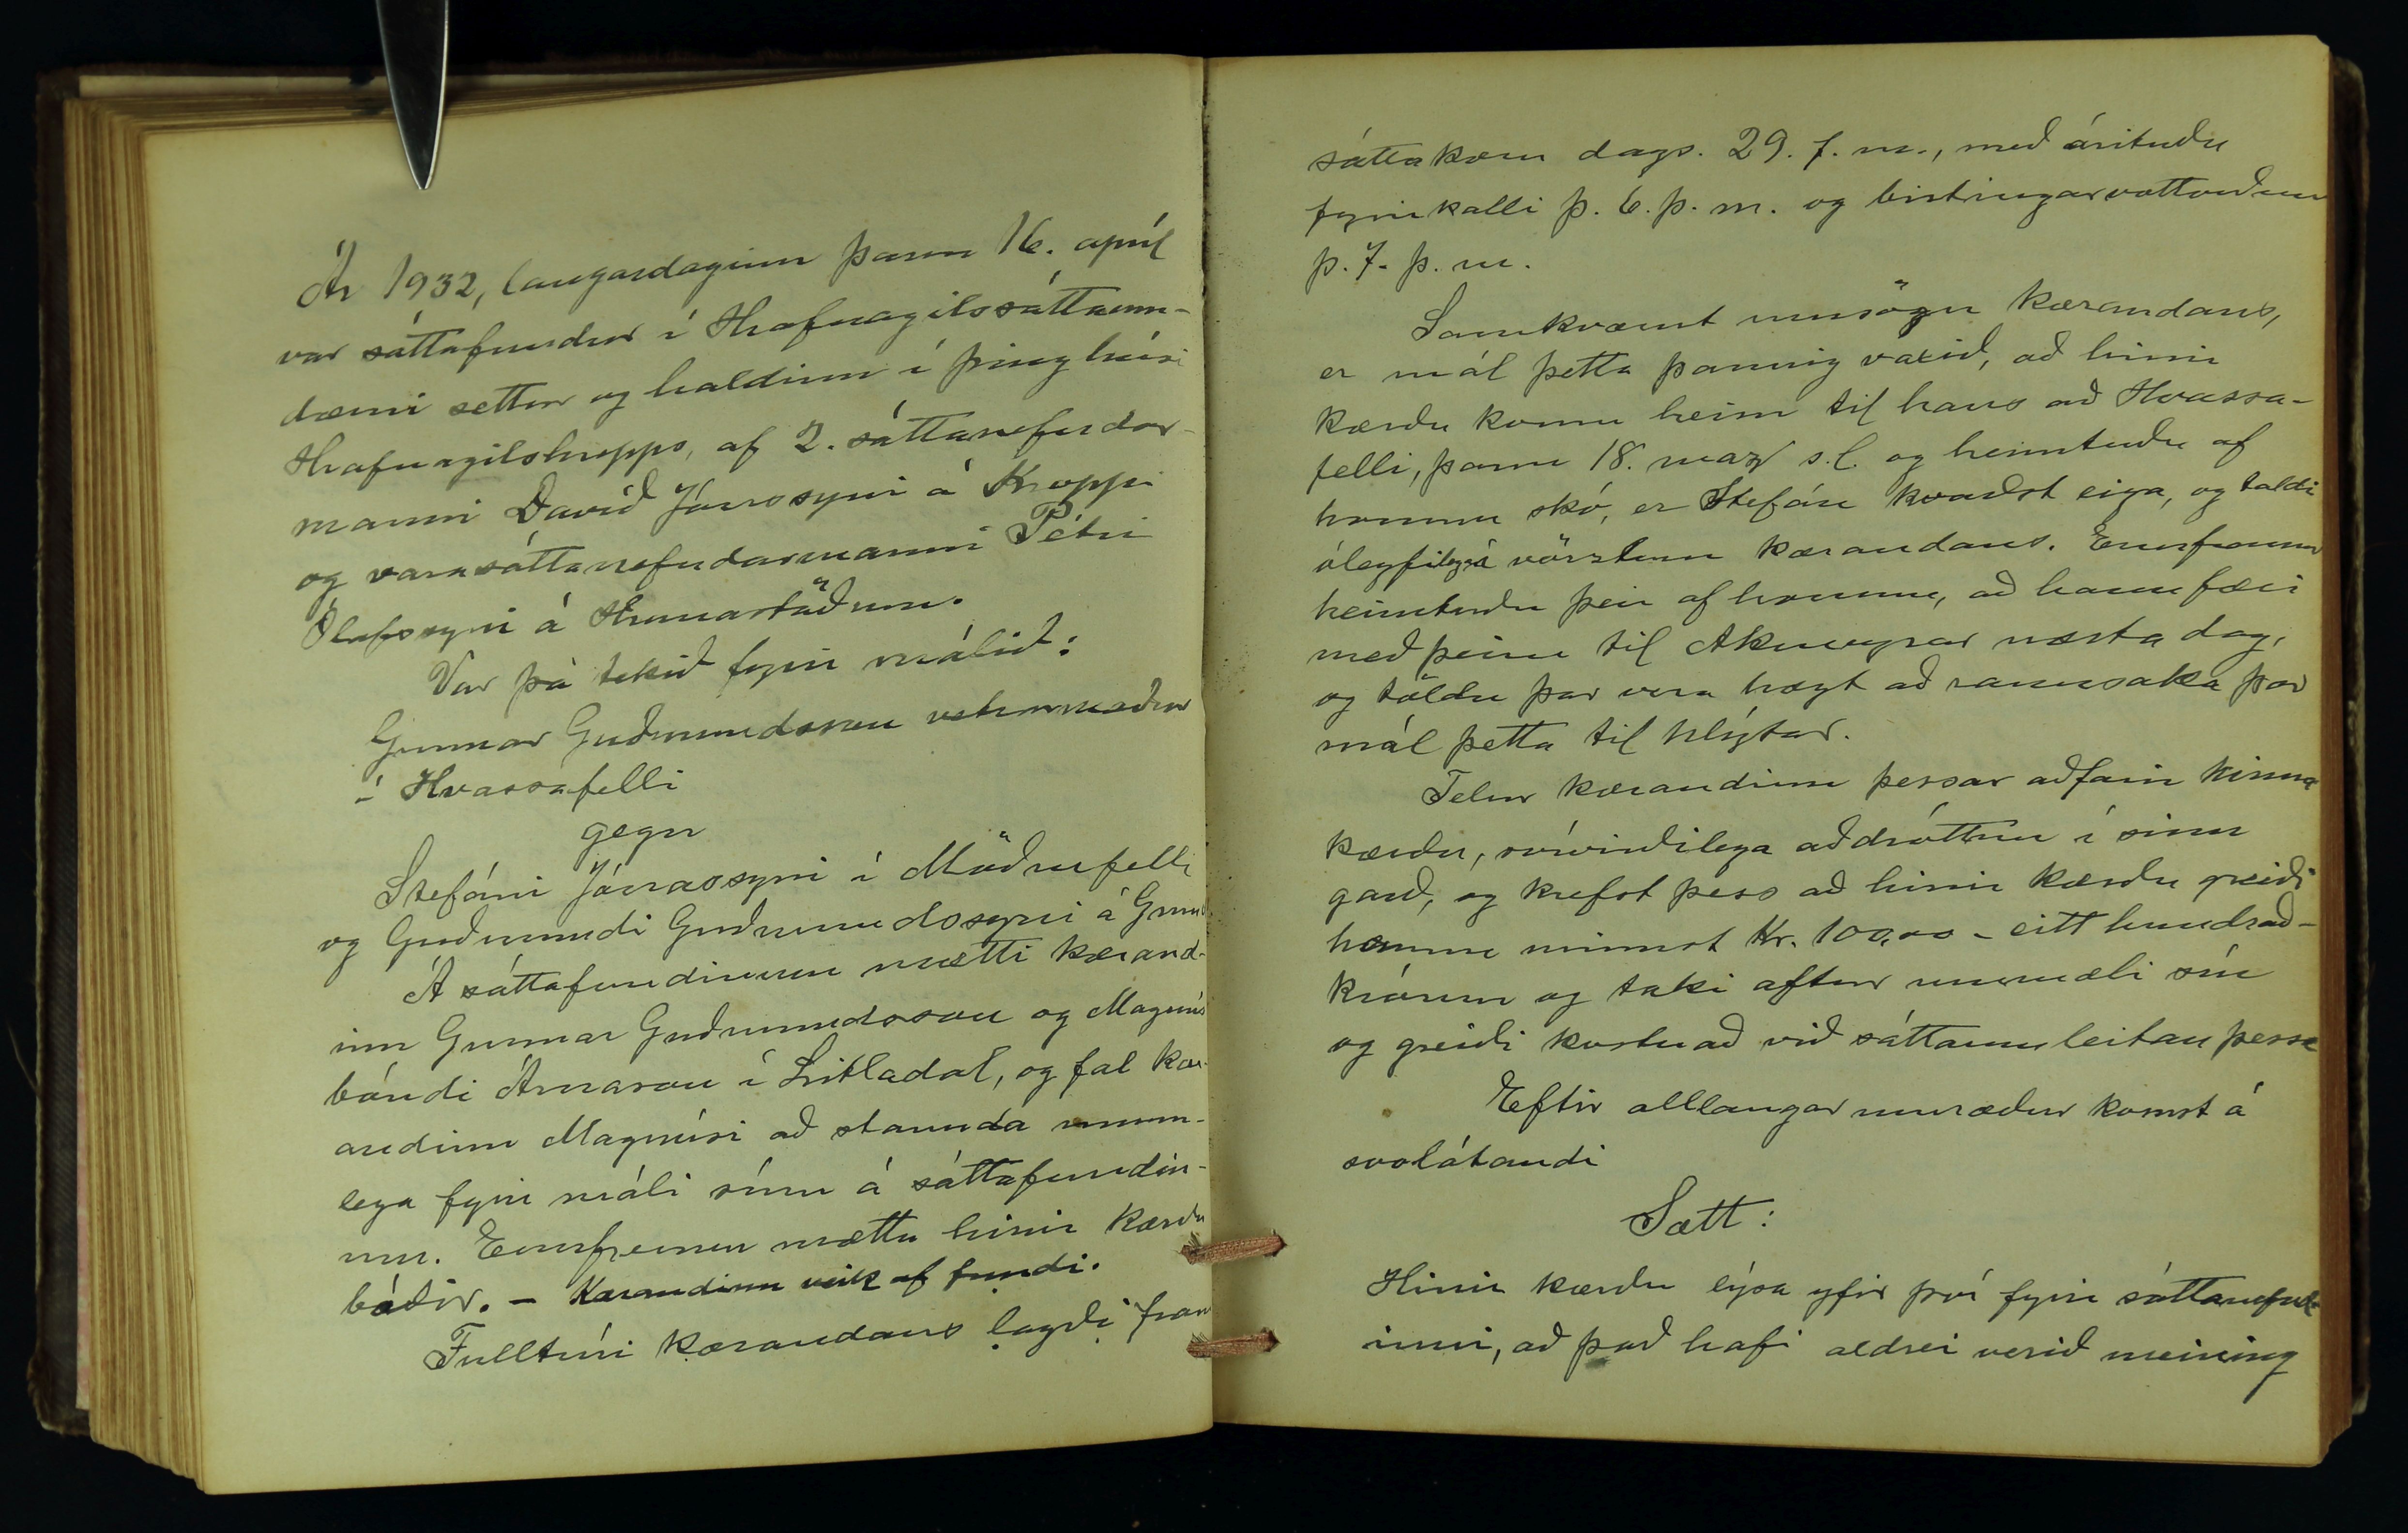 Ár 1932, laugardaginn þann 16. apríl
var sáttafundur í Hrafnagilssáttaum-
dæmi settur og haldinn í þinghúsi
Hrafnagilshrepps, af 2. sáttanefndar-
manni Davíð Jónssyni á Kroppi
og varasáttanefndarmanni Pétri
Ólafssyni á Hranastöðum.
Var þá tekið fyrir málið:
Gunnar Guðmundsson vetrarmaður
í Hvassafelli
gegn
Stefáni Jónassyni í Möðrufelli
og Guðmundi Guðmundssyni á Grund
Á sáttafundinum mætti kærand-
inn Gunnar Guðmundsson og Magnús
bóndi Árnason í Litladal, og fal kær-
andinn Magnúsi að stannda munn-
lega fyrir máli sínu á sáttafundin-
um. Ennfremur mættu hinir kærðu
báðir. – Kærandinn veik af fundi.
Fulltrúi kærandans lagði fram
sáttakæru dags. 29. f. m., með árituðu
fyrirkalli þ. 6. þ. m. og birtingarvottorðum
þ. 7. þ. m.
Samkvæmt umsögn kærandans,
er mál þetta þannig vaxið, að hinir
kærðu komu heim til hans að Hvassa-
felli, þann 18. marz s.l. og heimtuðu af
honum skó, er Stefán kvaðst eiga, og taldi
óleyfilega í vörzlum kærandans. Ennfremur
heimtuðu þeir af honum, að hann færi
með þeim til Akureyrar næsta dag,
og töldu þar vera hægt að rannsaka þar
mál þetta til hlýtar.
Telur kærandinn þessar aðfarir hinna
kærðu, svívirðilega aðdróttun í sinn
garð, og krefst þess að hinir kærðu greiði
honum minnst Kr. 100,00 – eitt hundrað –
krónur og taki aftur ummæli sín
og greiði kostnað við sáttaumleitan þessa
Eftir alllangar umræður komst á
svolátandi
Sætt:
Hinir kærðu lýsa yfir því fyrir sáttanefnd-
inni, að það hafi aldrei verið meining